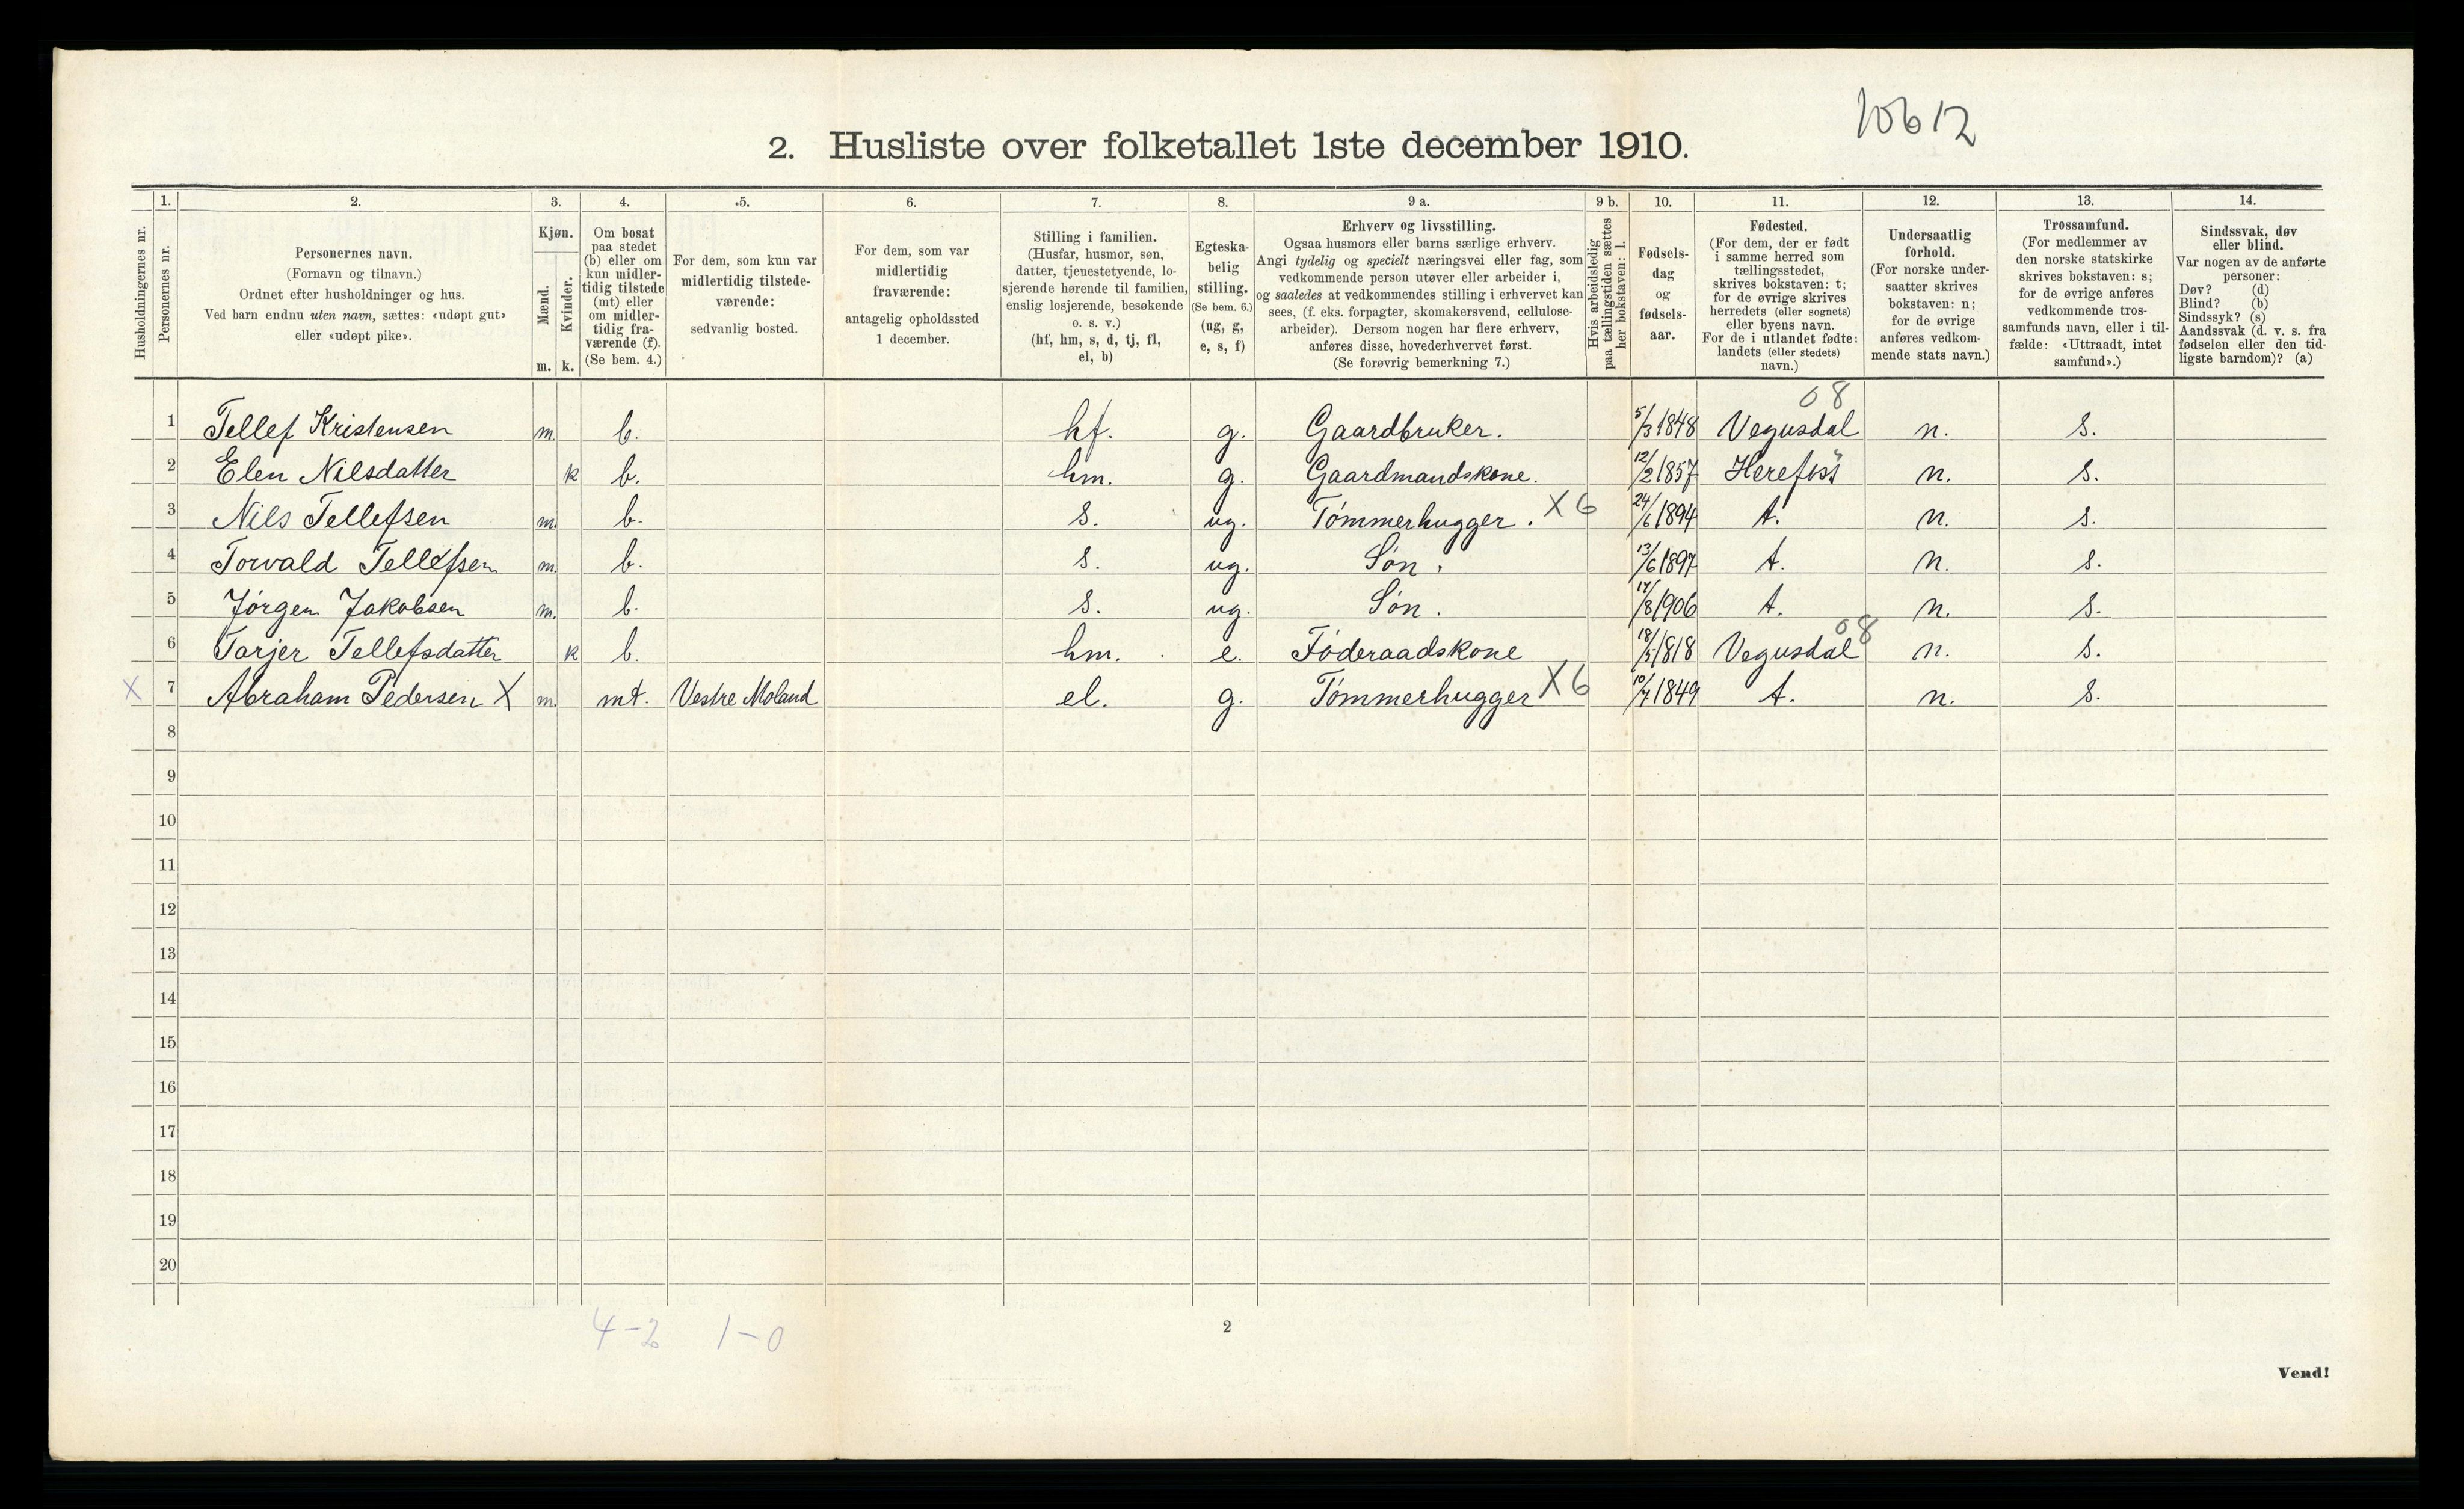 10612
2. Husliste over folketallet 1ste december 1910.
Husholdningernes nr.
1. Personernes nr.
2. Personernes navn. (Fornavn og tilnavn.) Ordnet efter husholdninger og hus. Ved barn endnu uten navn, sættes: «udøpt gut» eller «udøpt pike».
3. Kjøn. Mænd. m. Kvinder. k.
4. Om bosat paa stedet (b) eller om kun midler-tidig tilstede (mt) eller om midler-tidig fra-værende (f). (Se bem. 4.)
5. For dem, som kun var midlertidig tilstede-værende: sedvanlig bosted.
6. For dem, som var midlertidig fraværende: antagelig opholdssted 1 december.
7. Stilling i familien. (Husfar, husmor, søn, datter, tjenestetyende, lo-sjerende hørende til familien, enslig losjerende, besøkende o. s. v.) (hf, hm, s, d, tj, fl, el, b)
8. Egteska-belig stilling. (Se bem. 6.) (ug, g, e, s, f)
9 a. Erhverv og livsstilling. Ogsaa husmors eller barns særlige erhverv. Angi tydelig og specielt næringsvei eller fag, som vedkommende person utøver eller arbeider i, og saaledes at vedkommendes stilling i erhvervet kan sees, (f. eks. forpagter, skomakersvend, cellulose-arbeider). Dersom nogen har flere erhverv, anføres disse, hovederhvervet først. (Se forøvrig bemerkning 7.)
9 b. Hvis arbeidsledig paa tællingstiden sættes her bokstaven: l.
10. Fødsels-dag og fødsels-aar.
11. Fødested. (For dem, der er født i samme herred som tællingsstedet, skrives bokstaven: t; for de øvrige skrives herredets (eller sognets) eller byens navn. For de i utlandet fødte: landets (eller stedets) navn.)
12. Undersaatlig forhold. (For norske under-saatter skrives bokstaven: n; for de øvrige anføres vedkom-mende stats navn.)
13. Trossamfund. (For medlemmer av den norske statskirke skrives bokstaven: s; for de øvrige anføres vedkommende tros-samfunds navn, eller i til-fælde: «Uttraadt, intet samfund».)
14. Sindssvak, døv eller blind. Var nogen av de anførte personer: Døv? (d) Blind? (b) Sindssyk? (s) Aandssvak (d. v. s. fra fødselen eller den tid-ligste barndom)? (a)
08
1 Tellef Kristensen m. b. hf. g. Gaardbruker. 5/3 1848 Vegusdal n. s.
2 Elen Nilsdatter k b. hm. g. Gaardmandskone. 12/2 1857 Herefoss n. s.
3 Nils Tellefsen m. b. s. ug. Tømmerhugger. X 6 24/6 1894 t. n. s.
4 Torvald Tellefsen m. b. s. ug. Søn. 13/6 1897 t. n. s.
5 Jørgen Jakobsen m. b. s. ug. Søn. 17/8 1906 t. n. s.
08
6 Tarjer Tellefsdatter k b. hm. e. Føderaadskone 18/5 1818 Vegusdal n. s.
X 7 Abraham Pedersen X m. mt. Vestre Moland el. g. Tømmerhugger X 6 10/7 1849 t. n. s.
8
9
10
11
12
13
14
15
16
17
18
19
20
4-2 1-0
2
Vend!